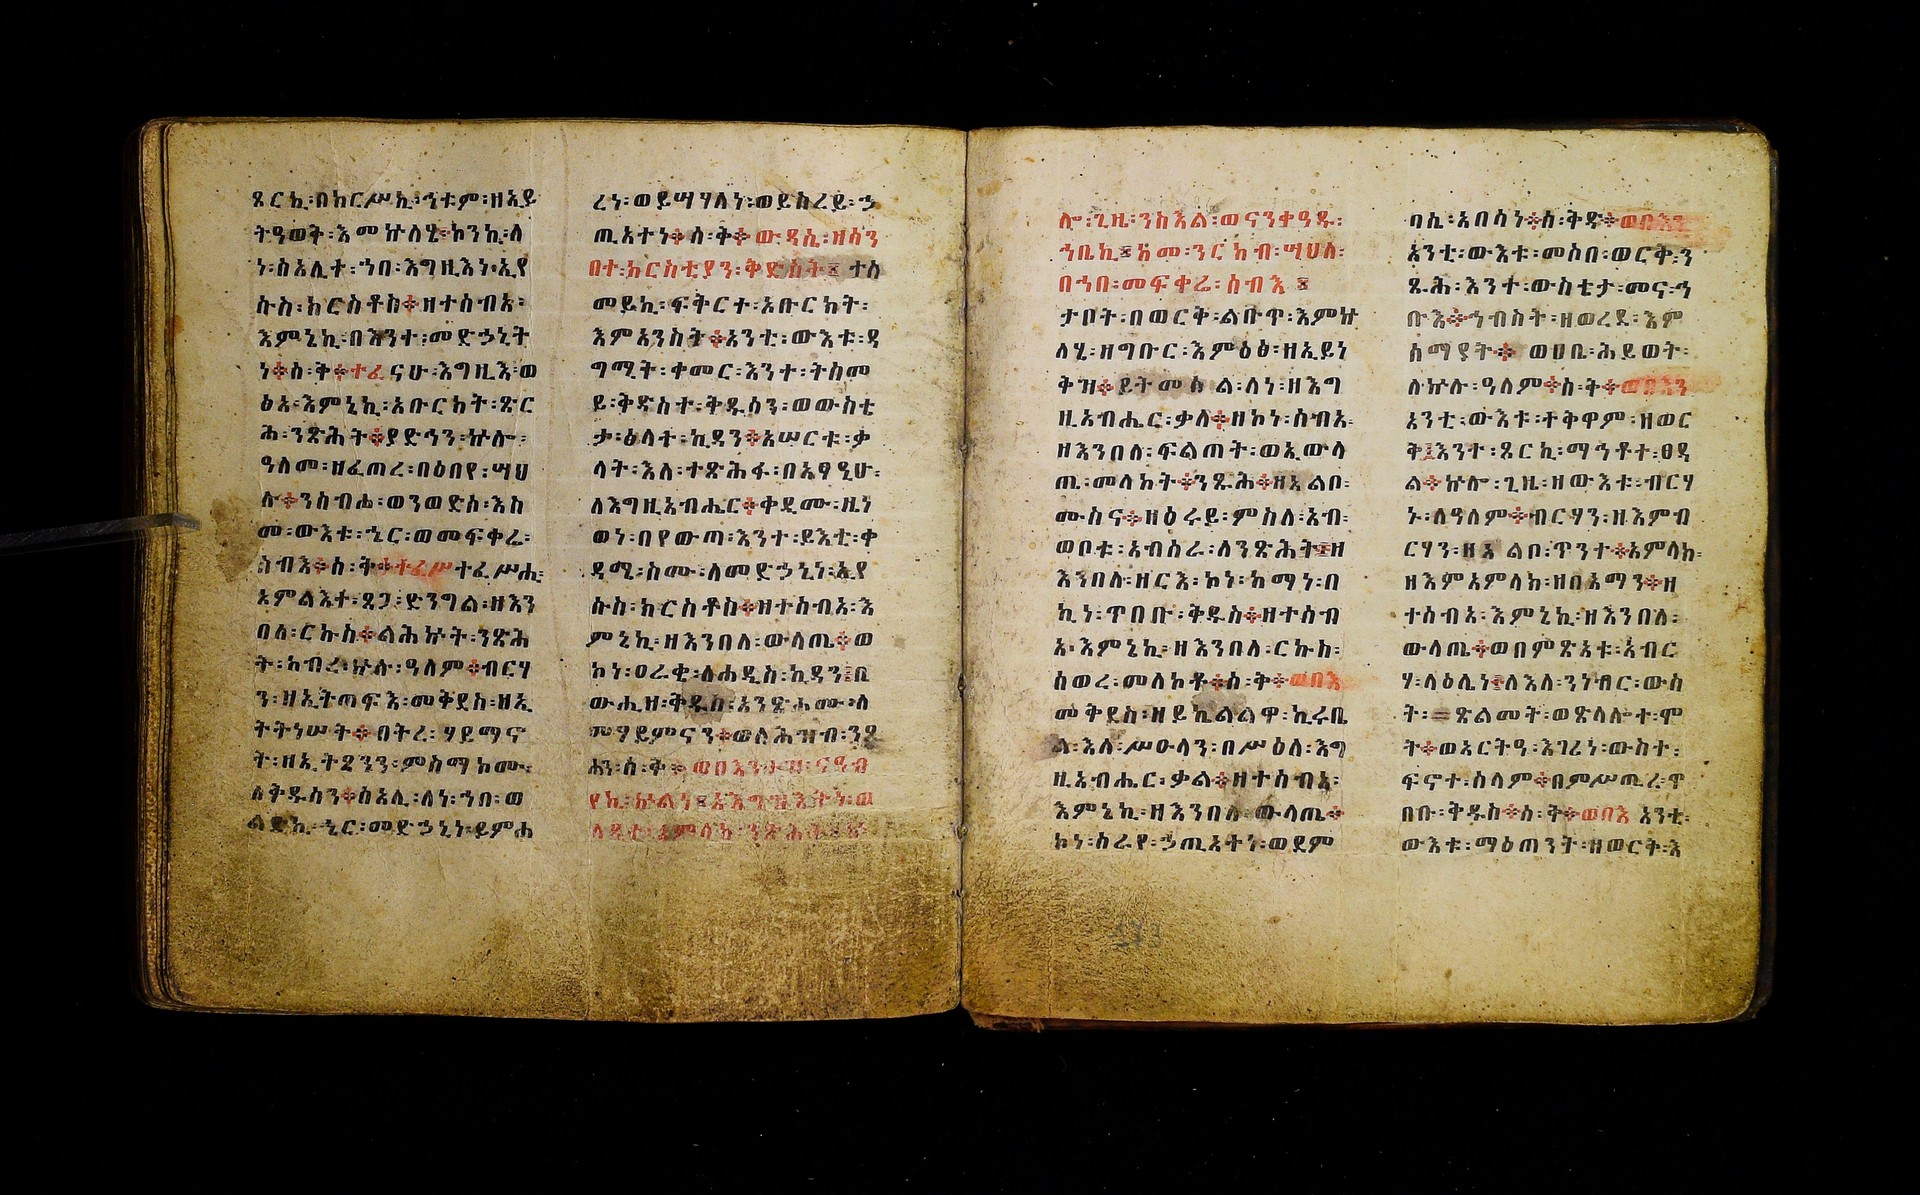 ጾርኪ፡በከርሥኪ፡ኅቱም፡ዘአይ
ትዓወቅ፡እመኵለሄ፡ኮንኪ፡ለ
ነ፡ሰአሊተ፡ኀበ፡እግዚእነ፡ኢየ
ሱስ፡ክርስቶስ፨ዘተሰብአ፡
እምኔኪ፡በእንተ፡መድኃኒት
ነ፨ስ፡ቅ፨ተፈናሁ፡እግዚእ፡ወ
ፅአ፡እምኔኪ፡አቡርከት፡ጽር
ሕ፡ንጽሕት፨ያድኅን፡ኵሎ፡
ዓለመ፡ዘፈጠረ፡በዕበየ፡ሣህ
ሉ፨ንሰብሖ፡ወንወድሶ፡እስ
መ፡ውእቱ፡ኄር፡ወመፍቀሬ፡
ሰብእ፨ስ፡ቅ፨ተፈሥተፈሥሒ፡
አምልእተ፡ጸጋ፡ድንግል፡ዘእን
በለ፡ርኩስ፨ልሕኵት፡ንጽሕ
ት፡ክብረ፡ኵሉ፡ዓለም፨ብርሃ
ን፡ዘኢትጠፍእ፡መቅደስ፡ዘኢ
ትትነሠት፨በትረ፡ሃይማኖ
ት፡ዘኢትጸንን፡ምስማኮሙ፡
ለቅዱሳን፨ሰአሊ፡ለነ፡ኀበ፡ወ
ልድኪ፡ኄር፡መድኃኒነ፡ይምሐ
ረነ፡ወይሣሃለነ፡ወይስረይ፡ኃ
ጢአተነ፨ስ፡ቅ፨ውዳሴ፡ዘሰን
በተ፡ክርስቲያን፡ቅድስት፤ተሰ
መይኪ፡ፍቅርተ፡አቡርክት፡
እምአንስት፨አንቲ፡ውእቱ፡ዳ
ግሚት፡ቀመር፡እንተ፡ትሰመ
ይ፡ቅድስተ፡ቅዱሳን፡ወውስቲ
ታ፡ፅላተ፡ኪዳን፨አሠርቱ፡ቃ
ላት፡እለ፡ተጽሕፋ፡በአፃብዒሁ፡
ለእግዚአብሔር፨ቀዲሙ፡ዜነ
ወነ፡በየውጣ፡እንተ፡ይእቲ፡ቀ
ዳሚ፡ስሙ፡ለመድኃኒነ፡ኢየ
ሱስ፡ክርስቶስ፨ዘተሰብአ፡እ
ምኔኪ፡ዘእንበለ፡ውላጤ፨ወ
ኮነ፡ዐራቂ፡ለሐዲስ፡ኪዳን፤በ
ውሒዘ፡ቅዱስ፡አንጽሖሙ፡ለ
መሃይምናን፨ወለሕዝብ፡ንጹ
ሐን፡ስ፡ቅ፨ወበእንተዝ፡ናዓብ
የኪ፡ኵልነ፤አእግዝእትነ፡ወ
ላዲተ፡አምላክ፡ንጽሕት፡
ሎ፡ጊዜ፡ንስእል፡ወናንቀዓዱ፡
ኀቤኪ፤ከመ፡ንርከብ፡ሣህለ፡
በኀበ፡መፍቀሬ፡ሰብእ፤
ታቦት፡በወርቅ፡ልቡጥ፡እምኵ
ለሄ፡ዘግቡር፡እምዕፅ፡ዘኢይነ
ቅዝ፨ይትመሰል፡ለነ፡ዘእግ
ዚአብሔር፡ቃለ፨ዘኮነ፡ሰብአ፡
ዘእንበለ፡ፍልጠት፡ወኢውላ
ጤ፡መለኮት፨ንጹሕ፨ዘአልቦ፡
ሙስና፨ዘዕሩይ፡ምስለ፡አብ፡
ወቦቱ፡አብሰራ፡ለንጽሕት፤ዘ
እንበለ፡ዘርእ፡ኮነ፡ከማነ፡በ
ኪነ፡ጥበቡ፡ቅዱስ፨ዘተሰብ
አ፡እምኔኪ፡ዘእንበለ፡ርኩስ፡
ሰወረ፡መለኮቶ፨ስ፡ቅ፨ወበእ
መቅደስ፡ዘይኬልልዋ፡ኪሩቤ
ል፡እለ፡ሥዑላን፡በሥዕለ፡እግ
ዚአብሔር፡ቃል፨ዘተሰብአ፡
እምኔኪ፡ዘእንበለ፡ውላጤ፨
ኮነ፡ሰራዬ፡ኃጢአትነ፡ወደም
በሴ፡አበሳነ፨ስ፡ቅድ፨ወበእን
አንቲ፡ውእቱ፡መሶበ፡ወርቅ፡ን
ጹሕ፡እንተ፡ውስቴታ፡መና፡ኅ
ቡእ፨ኅብስት፡ዘወረደ፡እም
ሰማያት፨ወሀቤ፡ሕይወት፡
ለኵሉ፡ዓለም፨ስ፡ቅ፨ወበእን
አንቲ፡ውእቱ፡ተቅዋም፡ዘወር
ቅ፤እንተ፡ጾርኪ፡ማኅቶተ፡ፀዳ
ል፨ኵሎ፡ጊዜ፡ዘውእቱ፡ብርሃ
ኑ፡ለዓለም፨ብርሃን፡ዘእምብ
ርሃን፡ዘአልቦ፡ጥንተ፨አምላክ፡
ዘእምአምላክ፡ዘበአማን፨ዘ
ተሰብአ፡እምኔኪ፡ዘእንበለ፡
ውላጤ፨ወበምጽአቱ፡አብር
ሃ፡ላዕሌነ፤ለእለ፡ንነብር፡ውስ
ተ፡ጽልመት፡ወጽላሎተ፡ሞ
ት፨ወአርትዓ፡እገሪነ፡ውስተ፡
ፍኖተ፡ሰላም፨በምሥጢረ፡ጥ
በቡ፡ቅዱስ፨ስ፡ቅ፨ወበእ አንቲ፡
ውእቱ፡ማዕጠንት፡ዘወርቅ፡እ